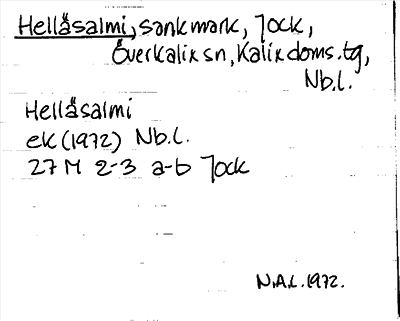 Hellåsalmi, sankmark, Jock,
Överkalix sn, Kalix doms.tg,
Nb.l.
Hellåsalmi
ek (1972) Nb.l.
27 M 2-3 a-b Jock
N.A.L. 1972.